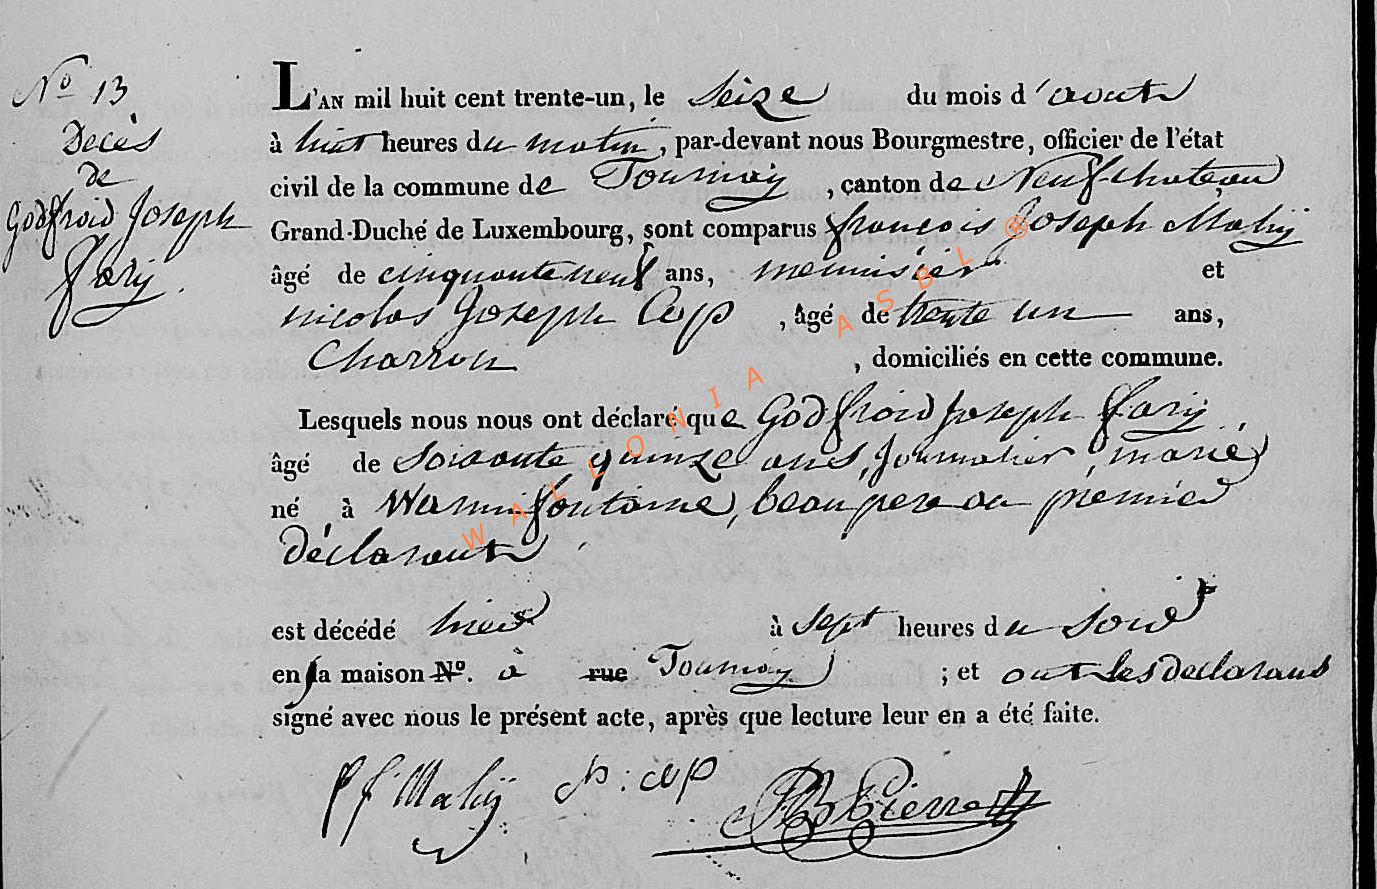 N° 13
Décès
de
Godfroid Joseph
Fary.
L'AN mil huit cent trente-un, le Seize du mois d'aout
à huit heures du matin, par-devant nous Bourgmestre, officier de l'état
civil de la commune de Tournay, canton de Neufchateau,
Grand-Duché de Luxembourg, sont comparus françois Joseph Mahy
âgé de cinquante neuf ans, menuisier et
nicolas Joseph Cop, âgé de trente un ans,
Charron, domiciliés en cette commune.
Lesquels nous nous ont déclaré que Godfroid Joseph fary
âgé de soixante quinze ans, Journalier, marié
né à Warmifontaine, beau pere au premier
déclarant
est décédé hier à sept heures du soir
en sa maison N°. à rue Tournay ; et ont les declarans
signé avec nous le présent acte, après que lecture leur en a été faite.
f j Mahy N : cop Pierret
WALLONIA ® ASBL